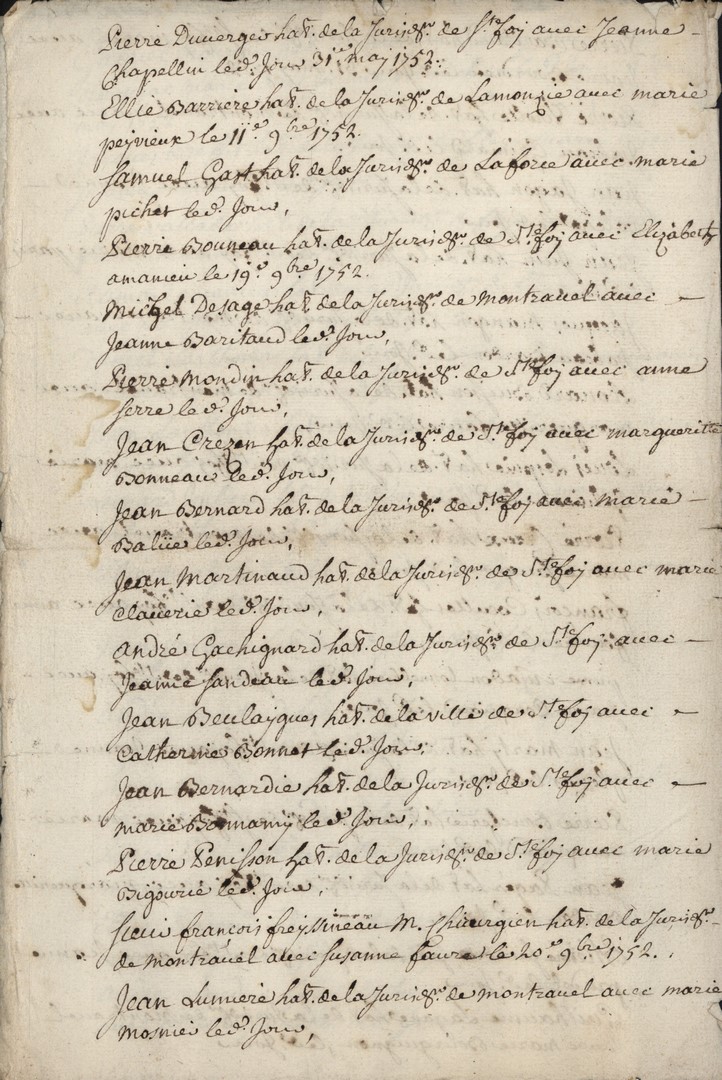 Pierre Duverger hat. de la Jurisdon. de Ste foy avec Jeanne –
Chapellin led. Jour 31e may 1752.
Ellie Barriere hat. de la Jurisdon. de Lamonzie avec marie
peyrieux le 11e. 9bre 1752.
Samuel Gast hat. de la Jurisdon. de Laforce avec marie
pichet led. Jour,
Pierre Bouneau hat. de la Jurisdon. de Ste foy avec Elizabeth
amanieu le 19e. 9bre 1752.
Michel Desage hat. de la Jurisdon. de montravel avec –
Jeanne Baritaud led. Jour,
Pierre Mondin hat. de la Jurisdon. de Ste foy avec anne
serre led. Jour,
Jean Crezen hat. de la Jurisdon. de Ste foy avec margueritte
Bonneau led. Jour,
Jean Bernard hat. de la Jurisdon. de Ste foy avec marie –
Balüe led. Jour,
Jean Martinaud hat. de la Jurisdon. de Ste foy avec marie
Claverie led. Jour,
André Gachignard hat. de la Jurisdon. de Ste foy avec –
Jeanne Sandeau led. Jour,
Jean Beulaygues hat. de la ville de Ste foy avec –
Catherine Bonnet led. Jour,
Jean Bernardie hat. de la Jurisdon. de Ste foy avec –
marie Bonnamy led. Jour,
Pierre Penisson hat. de la Jurisdon. de Ste foy avec marie
Bigourie led. Jour,
francois freyssineau M. Chirurgien hat. de la Jurisdon.
de montravel avec Susanne faure le 20e. 9bre 1752.
Jean Lumiere hat. de la Jurisdon. de montravel avec marie
Mosnier led. Jour,